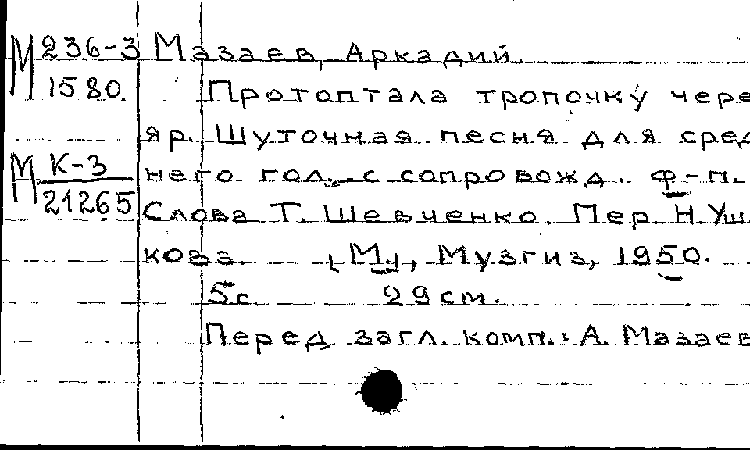 М 236-3 Мазаев, Аркадий.
1580. Протоптала тропочку чере
яр. Шуточная песня для сред
М К-3 него гол. с сопровожд. ф-п.
21265 Слова Т. Шевченко. Пер. Н. Уш
кова. [М], Музгиз, 1950.
5с. 29см.
Перед загл. комп.: А. Мазаев